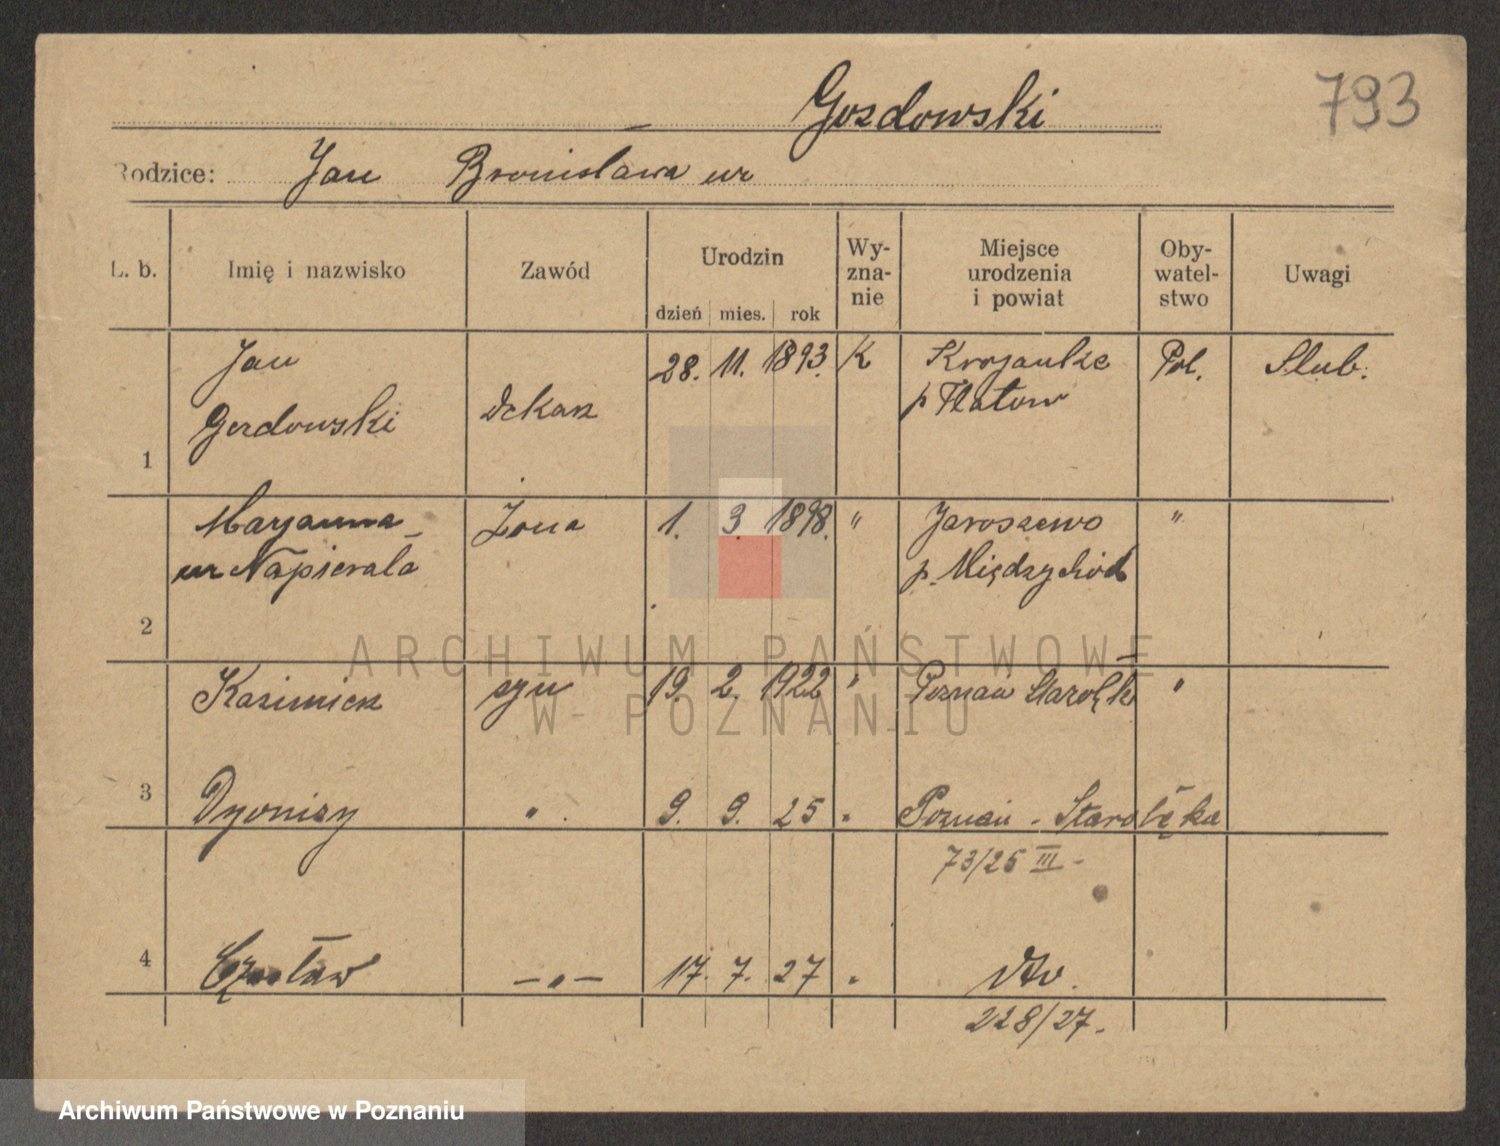 793
Gozdowski
Rodzice: Jan Bronisława ur
L. b. Imię i nazwisko Zawód Urodzin dzień mies. rok Wyznanie Miejsce urodzenia i powiat Obywatelstwo Uwagi
Jan 28. 11. 1893. K Krojanke Pol. Slub.
Gozdowski dekarz p Flatow
1
Maryanna Żona 1. 3. 1898. " Jaroszewo "
ur Napierała p. Międzychód
2
Kazimierz syn 19. 2. 1922 " Poznań Starołęk "
3 Dyonizy " 9. 9. 25 " Poznań - Starołęka
73/25 III -
4 Czesław — " — 17. 7. 27 " dto.
228/27.
ARCHIWUM PAŃSTWOWE
W POZNANIU
Archiwum Państwowe w Poznaniu